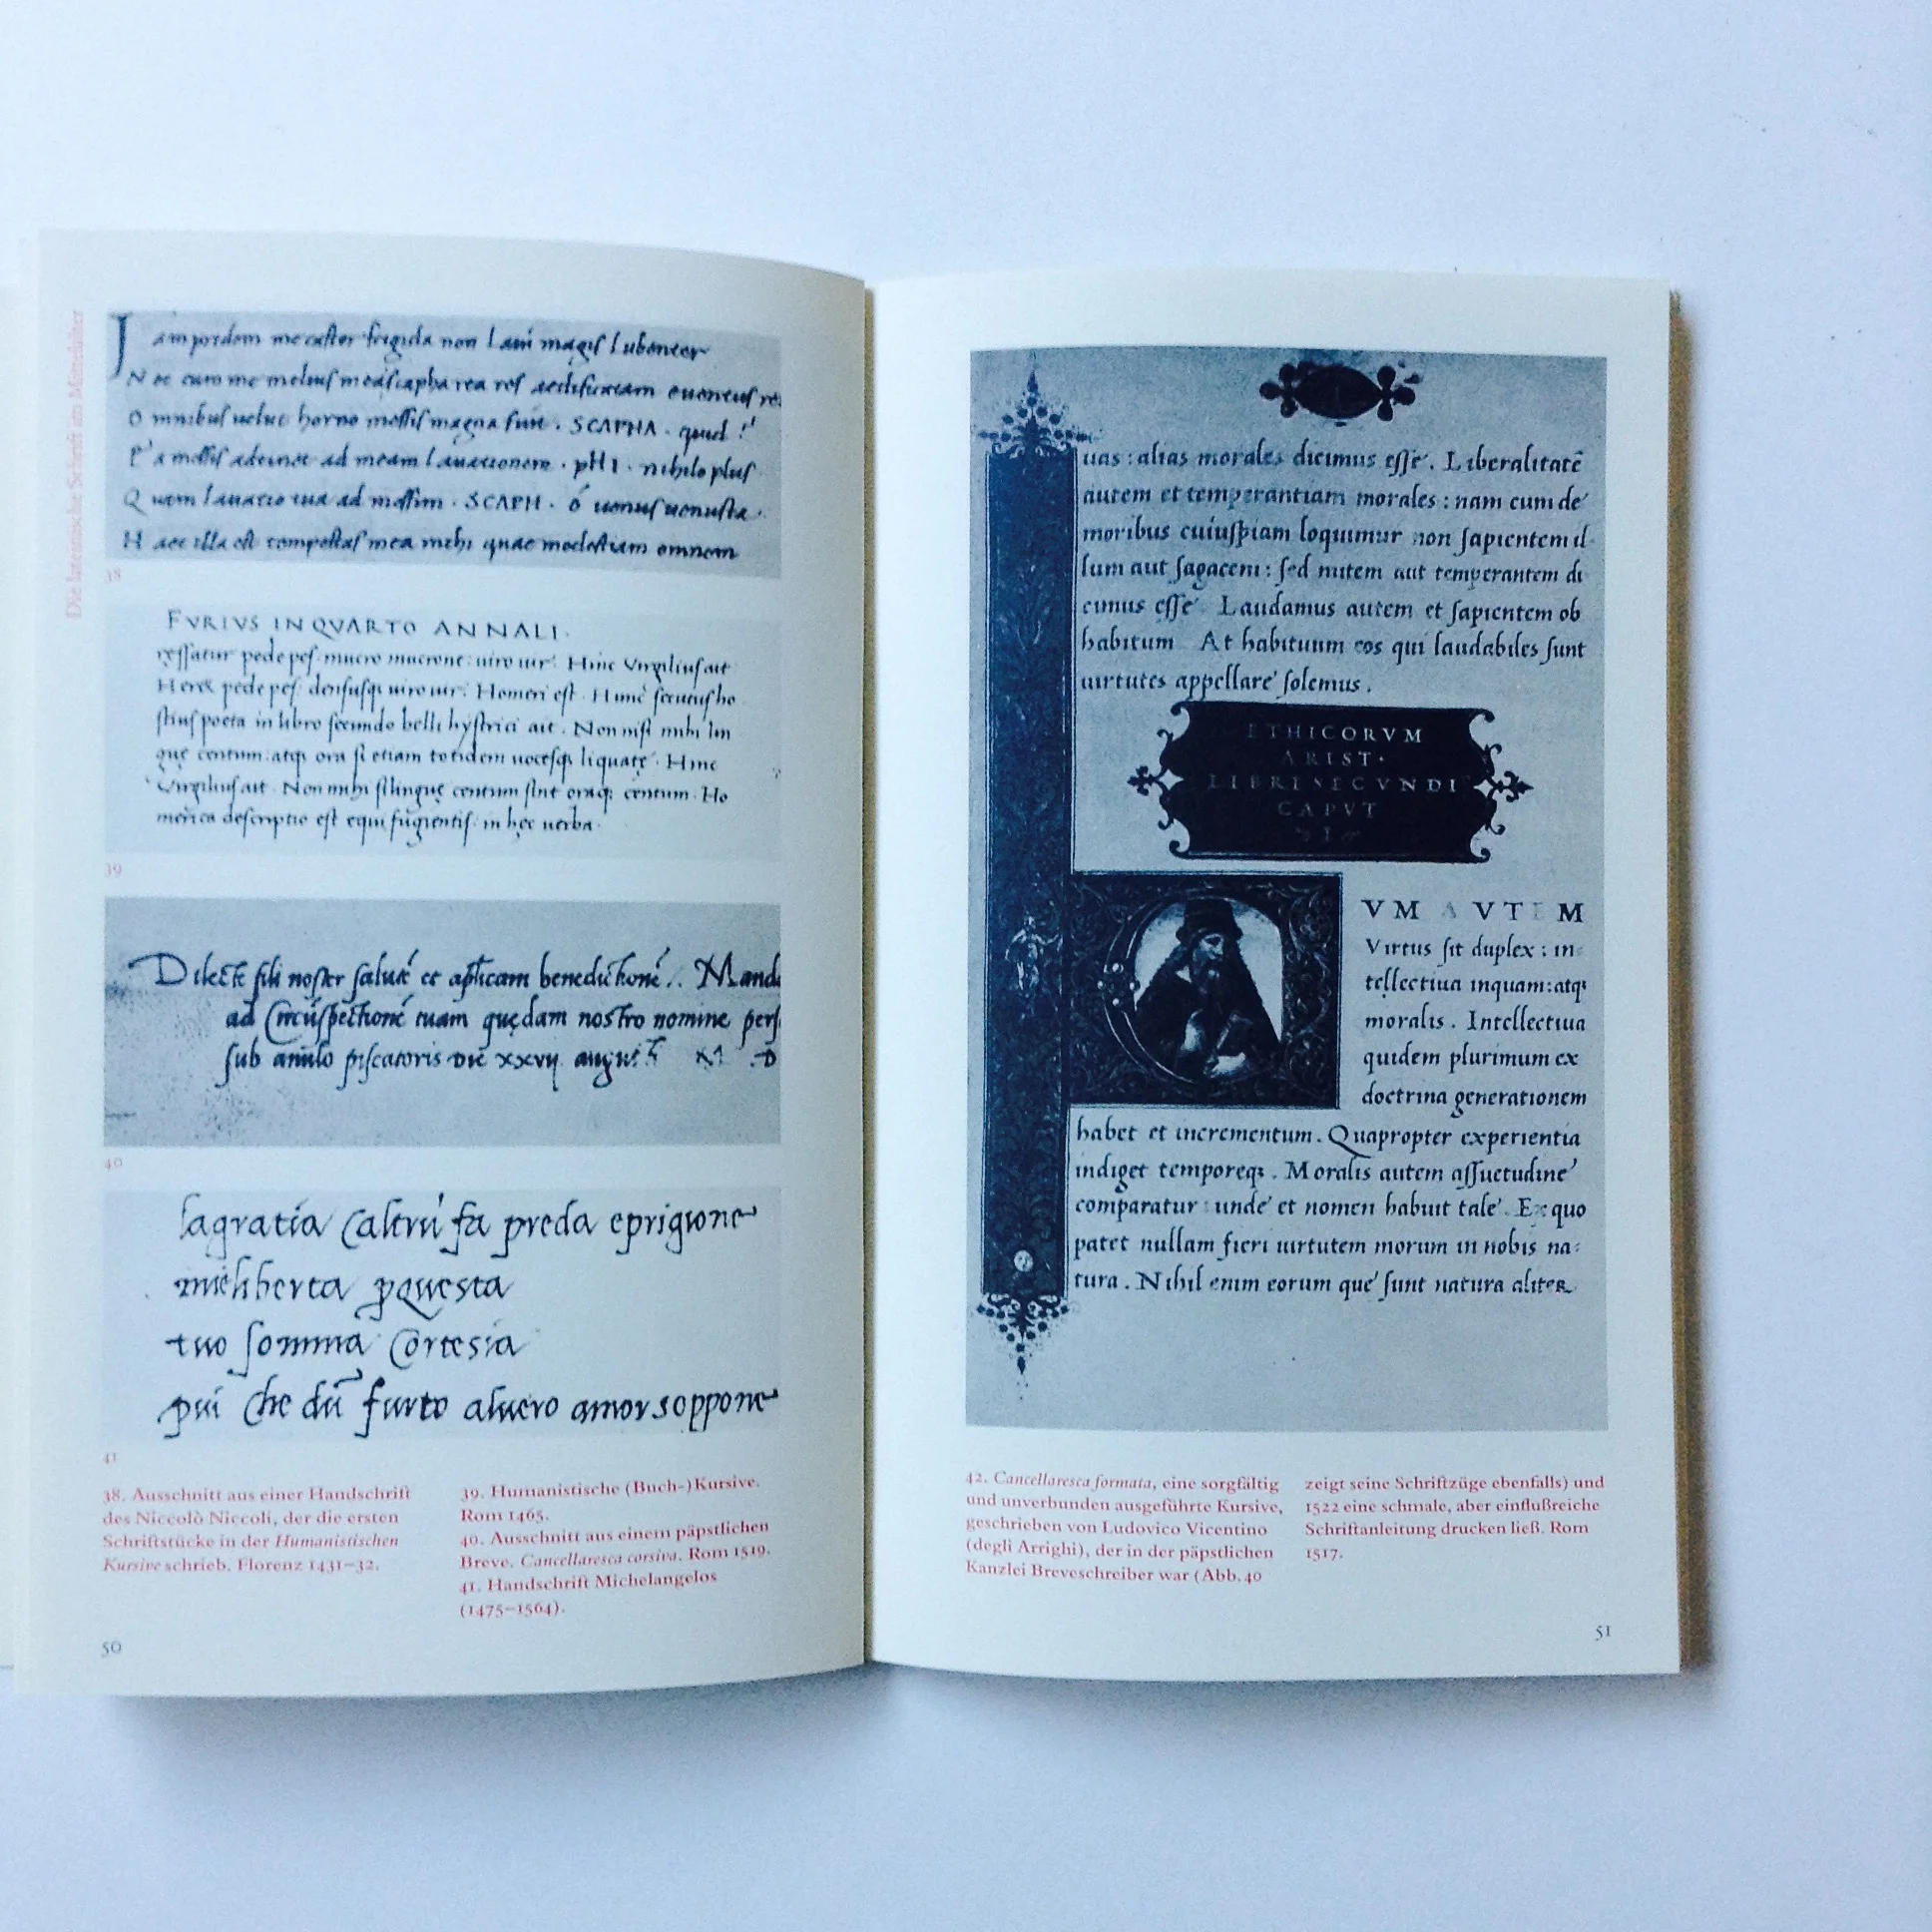 Die lateinische Schrift im Mittelalter
frigida non magis Lubenter
Nec cum me melius mea scapha rea
Omnibus uelut horno messis magna fuit · SCAPHA · quid
ad meam Lauationem · pHI · nihilo plus
Quam Lauatio tua ad messim · SCAPH · ó uenus uenusta ·
Haec illa est tempestas mea mihi quae modestiam omnem
38
FVRIVS IN QVARTO ANNALI ·
pede pes · mucro mucrone · uiro uir · Hinc Virgilius ait
Heret pede pes · densusq; uiro uir · Homeri est · Hunc secutus ho
stius poeta in libro secundo belli hystrici ait · Non nisi mihi lin
guę centum · atq; ora si etiam totidem uocesq; liquatę · Hinc
Virgilius ait · Non mihi si linguę centum sint oraq; centum · Ho
merica descriptio est equi fugientis · in hęc uerba ·
39
fili noster saluté et benedictioné ∕. Manda
ad Circúspectioné tuam quędam nostro nomine pers
sub anulo piscatoris die xxvij
40
la gratia Caltru fa preda e prigione
questa
tuo somma Cortesia
che furto amor soppone
41
38. Ausschnitt aus einer Handschrift
des Niccolò Niccoli, der die ersten
Schriftstücke in der Humanistischen
Kursive schrieb. Florenz 1431–32.
39. Humanistische (Buch-)Kursive.
Rom 1465.
40. Ausschnitt aus einem päpstlichen
Breve. Cancellaresca corsiva. Rom 1519.
41. Handschrift Michelangelos
(1475–1564).
50
uas : alias morales dicimus esse . Liberalitatē
autem et temperantiam morales : nam cum de
moribus cuiuspiam loquimur non sapientem il-
lum aut sagacem : sed mitem aut temperantem di
cimus esse . Laudamus autem et sapientem ob
habitum . At habituum eos qui laudabiles sunt
uirtutes appellare solemus .
ETHICORVM
ARIST·
LIBRI SECVNDI
CAPVT
I
VM AVTEM
Virtus sit duplex : in-
tellectiua inquam : atq;
moralis . Intellectiua
quidem plurimum ex
doctrina generationem
habet et incrementum . Quapropter experientia
indiget temporeq; . Moralis autem assuetudine
comparatur : unde et nomen habuit tale . Ex quo
patet nullam fieri uirtutem morum in nobis na-
tura . Nihil enim eorum que sunt natura aliter
42. Cancellaresca formata, eine sorgfältig
und unverbunden ausgeführte Kursive,
geschrieben von Ludovico Vicentino
(degli Arrighi), der in der päpstlichen
Kanzlei Breveschreiber war (Abb. 40
zeigt seine Schriftzüge ebenfalls) und
1522 eine schmale, aber einflußreiche
Schriftanleitung drucken ließ. Rom
1517.
51